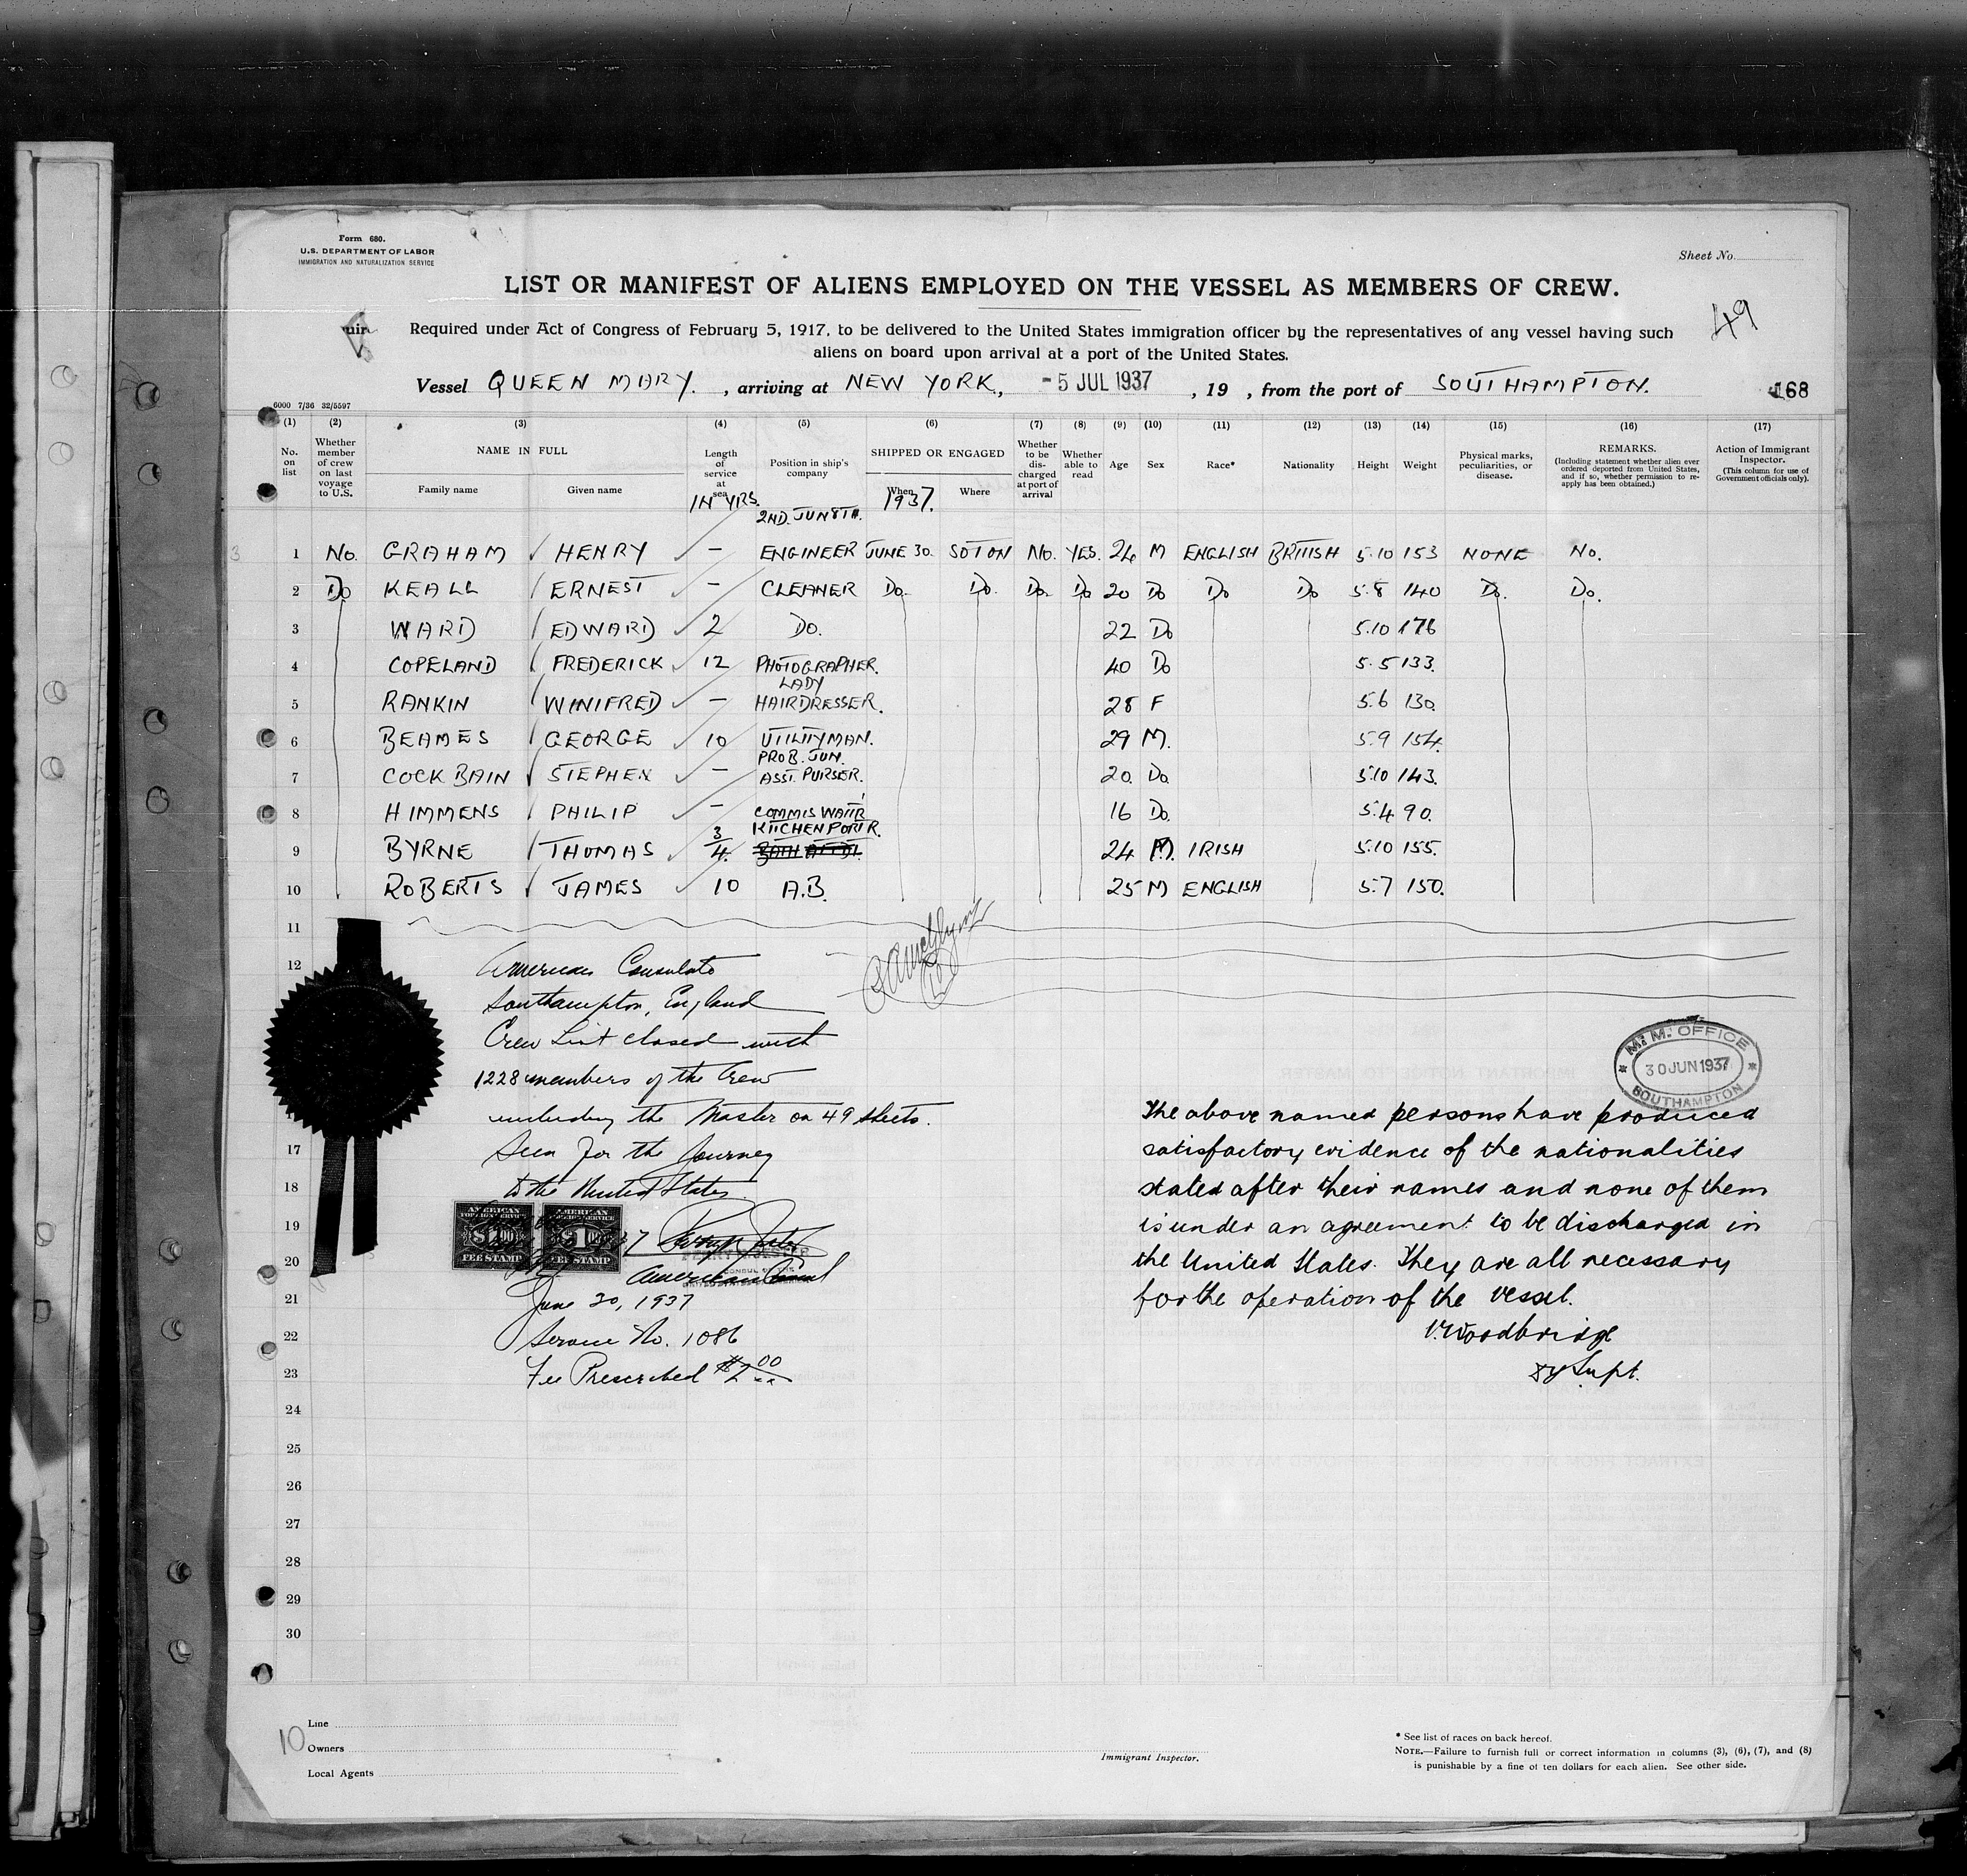 Form 680.
U.S. DEPARTMENT OF LABOR
IMMIGRATION AND NATURALIZATION SERVICE
Sheet No.
LIST OR MANIFEST OF ALIENS EMPLOYED ON THE VESSEL AS MEMBERS OF CREW.
49
uir
Required under Act of Congress of February 5, 1917, to be delivered to the United States immigration officer by the representatives of any vessel having such
aliens on board upon arrival at a port of the United States.
Vessel QUEEN MARY. , arriving at NEW YORK, -5 JUL 1937 , 19 , from the port of SOUTHAMPTON.
168
6000 7/36 32/5597
(1) (2) (3) (4) (5) (6) (7) (8) (9) (10) (11) (12) (13) (14) (15) (16) (17)
No. on list
Whether member of crew on last voyage to U.S.
NAME IN FULL
Family name Given name
Length of service at sea
IN YRS.
Position in ship's company
SHIPPED OR ENGAGED
When Where
1937.
Whether to be discharged at port of arrival
Whether able to read
Age
Sex
Race*
Nationality
Height
Weight
Physical marks, peculiarities, or disease.
REMARKS.
(Including statement whether alien ever ordered deported from United States, and if so, whether permission to reapply has been obtained.)
Action of Immigrant Inspector.
(This column for use of Government officials only).
2ND. JUN 8TH.
3 1 No. GRAHAM HENRY - ENGINEER JUNE 30. SOTON No. YES. 24 M ENGLISH BRITISH 5.10 153 NONE No.
2 Do KEALL ERNEST - CLEANER Do. Do. Do. Do 20 Do Do Do 5.8 140 Do. Do.
3 WARD EDWARD 2 Do. 22 Do 5.10 176
4 COPELAND FREDERICK 12 PHOTOGRAPHER. 40 Do 5.5 133.
LADY
5 RANKIN WINIFRED - HAIRDRESSER. 28 F 5.6 130.
6 BEAMES GEORGE 10 UTILITYMAN. 29 M. 5.9 154.
PROB. JUN.
7 COCKBAIN STEPHEN - ASST. PURSER. 20. Do. 5.10 143.
8 HIMMENS PHILIP - COMMIS WAITR 16 Do. 5.4 90.
KITCHEN PORTR.
9 BYRNE THOMAS 3/4. BATH ATTDT. 24 M. IRISH 5.10 155.
10 ROBERTS JAMES 10 A.B. 25 M ENGLISH 5.7 150.
11
12
American Consulate
Southampton, England
Crew List closed with
1228 members of the Crew
including the Master on 49 sheets.
Seen for the Journey
to the United States
AMERICAN FOREIGN SERVICE $1.00 FEE STAMP
AMERICAN FOREIGN SERVICE $1.00 FEE STAMP
American Consul
June 30, 1937
Service No. 1086
Fee Prescribed $2.00
M. M. OFFICE
30 JUN 1937
SOUTHAMPTON
The above named persons have produced
satisfactory evidence of the nationalities
stated after their names and none of them
is under an agreement to be discharged in
the United States. They are all necessary
for the operation of the vessel.
V. Woodbridge
Dy Supt.
17
18
19
20
21
22
23
24
25
26
27
28
29
30
10
Line
Owners
Local Agents
Immigrant Inspector.
* See list of races on back hereof.
NOTE.—Failure to furnish full or correct information in columns (3), (6), (7), and (8)
is punishable by a fine of ten dollars for each alien. See other side.